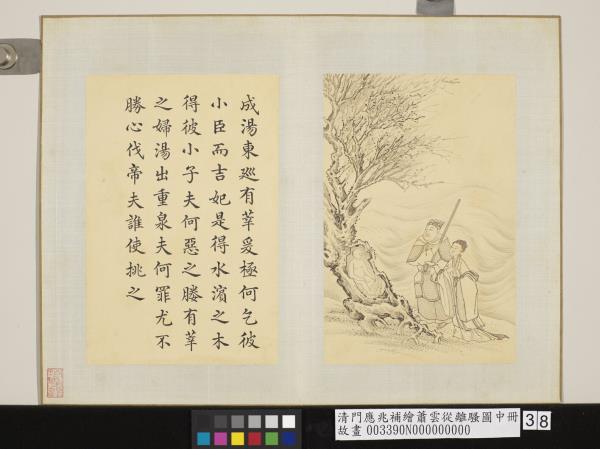 成湯東巡有莘爰極何乞彼
小臣而吉妃是得水濱之木
得彼小子夫何惡之媵有莘
之婦湯出重泉夫何罪尤不
勝心伐帝夫誰使挑之
清門應兆補繪蕭雲從離騷圖中冊
故畫003390N000000000
38